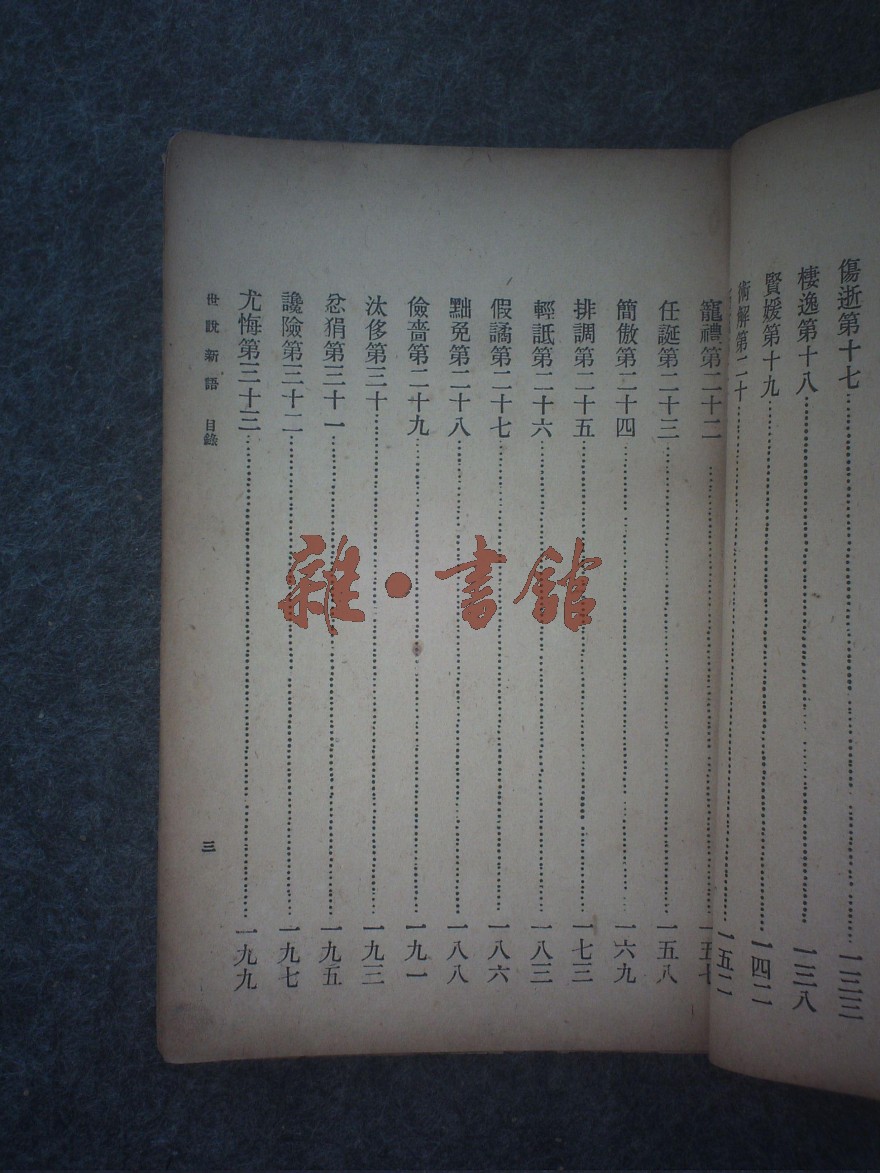 傷逝第十七……一三三
棲逸第十八……一三八
賢媛第十九……一四二
術解第二十……一五二
寵禮第二十二……一五七
任誕第二十三……一五八
簡傲第二十四……一六九
排調第二十五……一七三
輕詆第二十六……一八三
假譎第二十七……一八六
黜免第二十八……一八八
儉嗇第二十九……一九一
汰侈第三十……一九三
忿狷第三十一……一九五
讒險第三十二……一九七
尤悔第三十三……一九九
世說新語 目錄 三
雜·書館